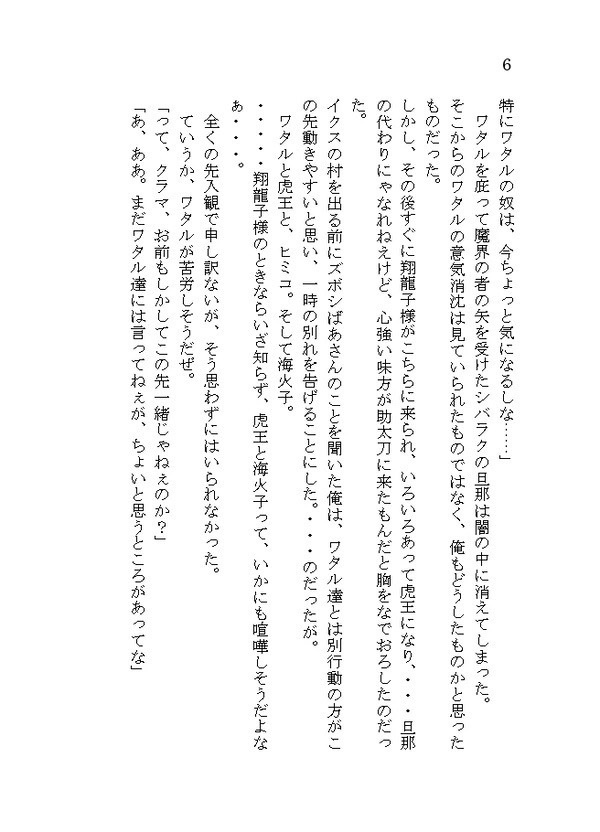 6
特にワタルの奴は、今ちょっと気になるしな……」
　ワタルを庇って魔界の者の矢を受けたシバラクの旦那は闇の中に消えてしまった。
そこからのワタルの意気消沈は見ていられたものではなく、俺もどうしたものかと思った
ものだった。
しかし、その後すぐに翔龍子様がこちらに来られ、いろいろあって虎王になり、・・・旦那
の代わりにゃなれねえけど、心強い味方が助太刀に来たもんだと胸をなでおろしたのだっ
た。
イクスの村を出る前にズボシばあさんのことを聞いた俺は、ワタル達とは別行動の方がこ
の先動きやすいと思い、一時の別れを告げることにした。・・・のだったが。
　ワタルと虎王と、ヒミコ。そして海火子。
・・・・・翔龍子様のときならいざ知らず、虎王と海火子って、いかにも喧嘩しそうだよな
ぁ・・・。
　全くの先入観で申し訳ないが、そう思わずにはいられなかった。
　ていうか、ワタルが苦労しそうだぜ。
「って、クラマ、お前もしかしてこの先一緒じゃねぇのか？」
「あ、ああ。まだワタル達には言ってねぇが、ちょいと思うところがあってな」